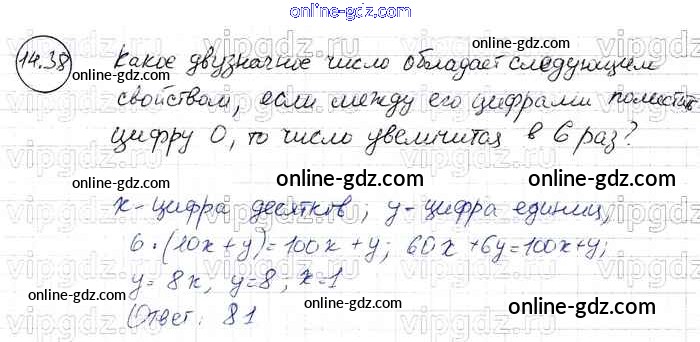 online-gdz.com
14.38 Какое двузначное число обладает следующим
online-gdz.com
свойством, если между его цифрами поместить
цифру 0, то число увеличится в 6 раз?
online-gdz.com
online-gdz.com
x-цифра десятков; y-цифра единиц,
online-gdz.com
6·(10x+y)=100x+y; 60x+6y=100x+y;
y=8x, y=8; x=1
online-gdz.com
online-gdz.com
Ответ: 81